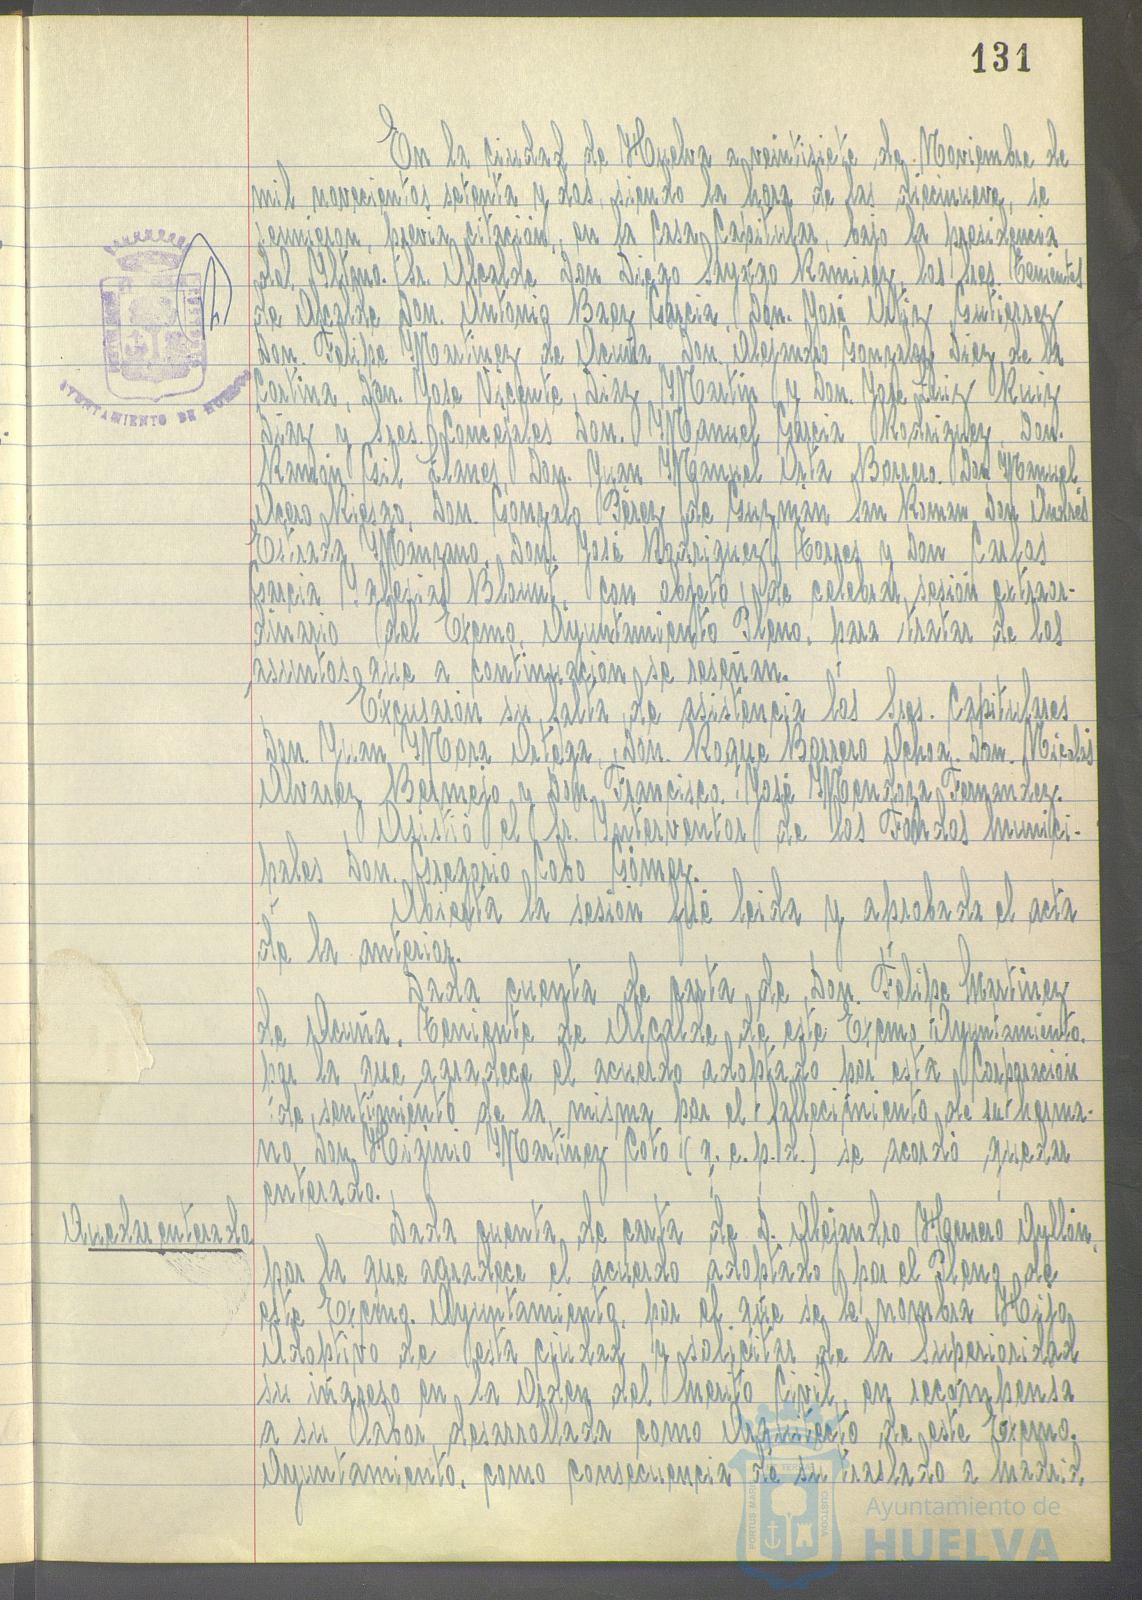 131
En la ciudad de Huelva a veintisiete de Noviembre de
mil novecientos setenta y dos, siendo la hora de las diecinueve, se
reunieron, previa citación, en la Casa Capitular, bajo la presidencia
del Iltmo. Sr. Alcalde Don Diego Sayago Ramirez, los Sres. Tenientes
de Alcalde Don. Antonio Baez Garcia, Don. José Ortiz Gutierrez
Don. Felipe Martinez de Acuña, Don. Alejandro Gonzalez Diez de la
Cortina, Don. Jose Vicente Diaz Martin y Don. Jose Luiz Ruiz
Diaz y Sres. Concejales Don. Manuel Garcia Rodriguez, Don.
Ramón Gil Llanes, Don. Juan Manuel Orta Borrero. Don Manuel
Acero Riesgo, Don. Gonzalo Pérez de Guzmán San Roman Don Andrés
Estrada Manzano, Don. José Rodriguez Torres y Don Carlos
Garcia Blount, con objeto de celebrar sesión extraor-
dinario del Excmo. Ayuntamiento Pleno, para tratar de los
asuntos que a continuación se reseñan.
Excusaron su falta de asistencia los Sres. Capitulares
Don. Juan Mora Ortega, Don. Roque Borrero Ochoa. Don. Nicolás
Alvarez Bermejo y Don. Francisco. José Mendoza Fernandez.
Asistió el Sr. Interventor de los Fondos Munici-
pales Don. Gregorio Cobo Gómez.
Abierta la sesión fué leida y aprobada el acta
de la anterior.
Dada cuenta de carta de Don. Felipe Martinez
de Acuña, Teniente de Alcalde de este Excmo Ayuntamiento.
por la que agradece el acuerdo adoptado por esta Corporación
de sentimiento de la misma por el fallecimiento de su herma-
no Don Higinio Martinez Coto (q. e. p. d.) se acordó quedar
enterado.
Quedar enterado
Dada cuenta de carta de D. Alejandro Herrero Ayllón,
por la que agradece el acuerdo adoptado por el Pleno de
este Excmo. Ayuntamiento, por el que se le nombra Hijo
Adoptivo de esta ciudad y solicitar de la Superioridad
su ingreso en la Orden del Merito Civil, en recompensa
a su labor desarrollada como Arquitecto de este Excmo.
Ayuntamiento, como consecuencia de su traslado a Madrid.
AYUNTAMIENTO DE HUELVA
PORTUS MARIS
ET TERRAE
CUSTODIA
Ayuntamiento de
HUELVA